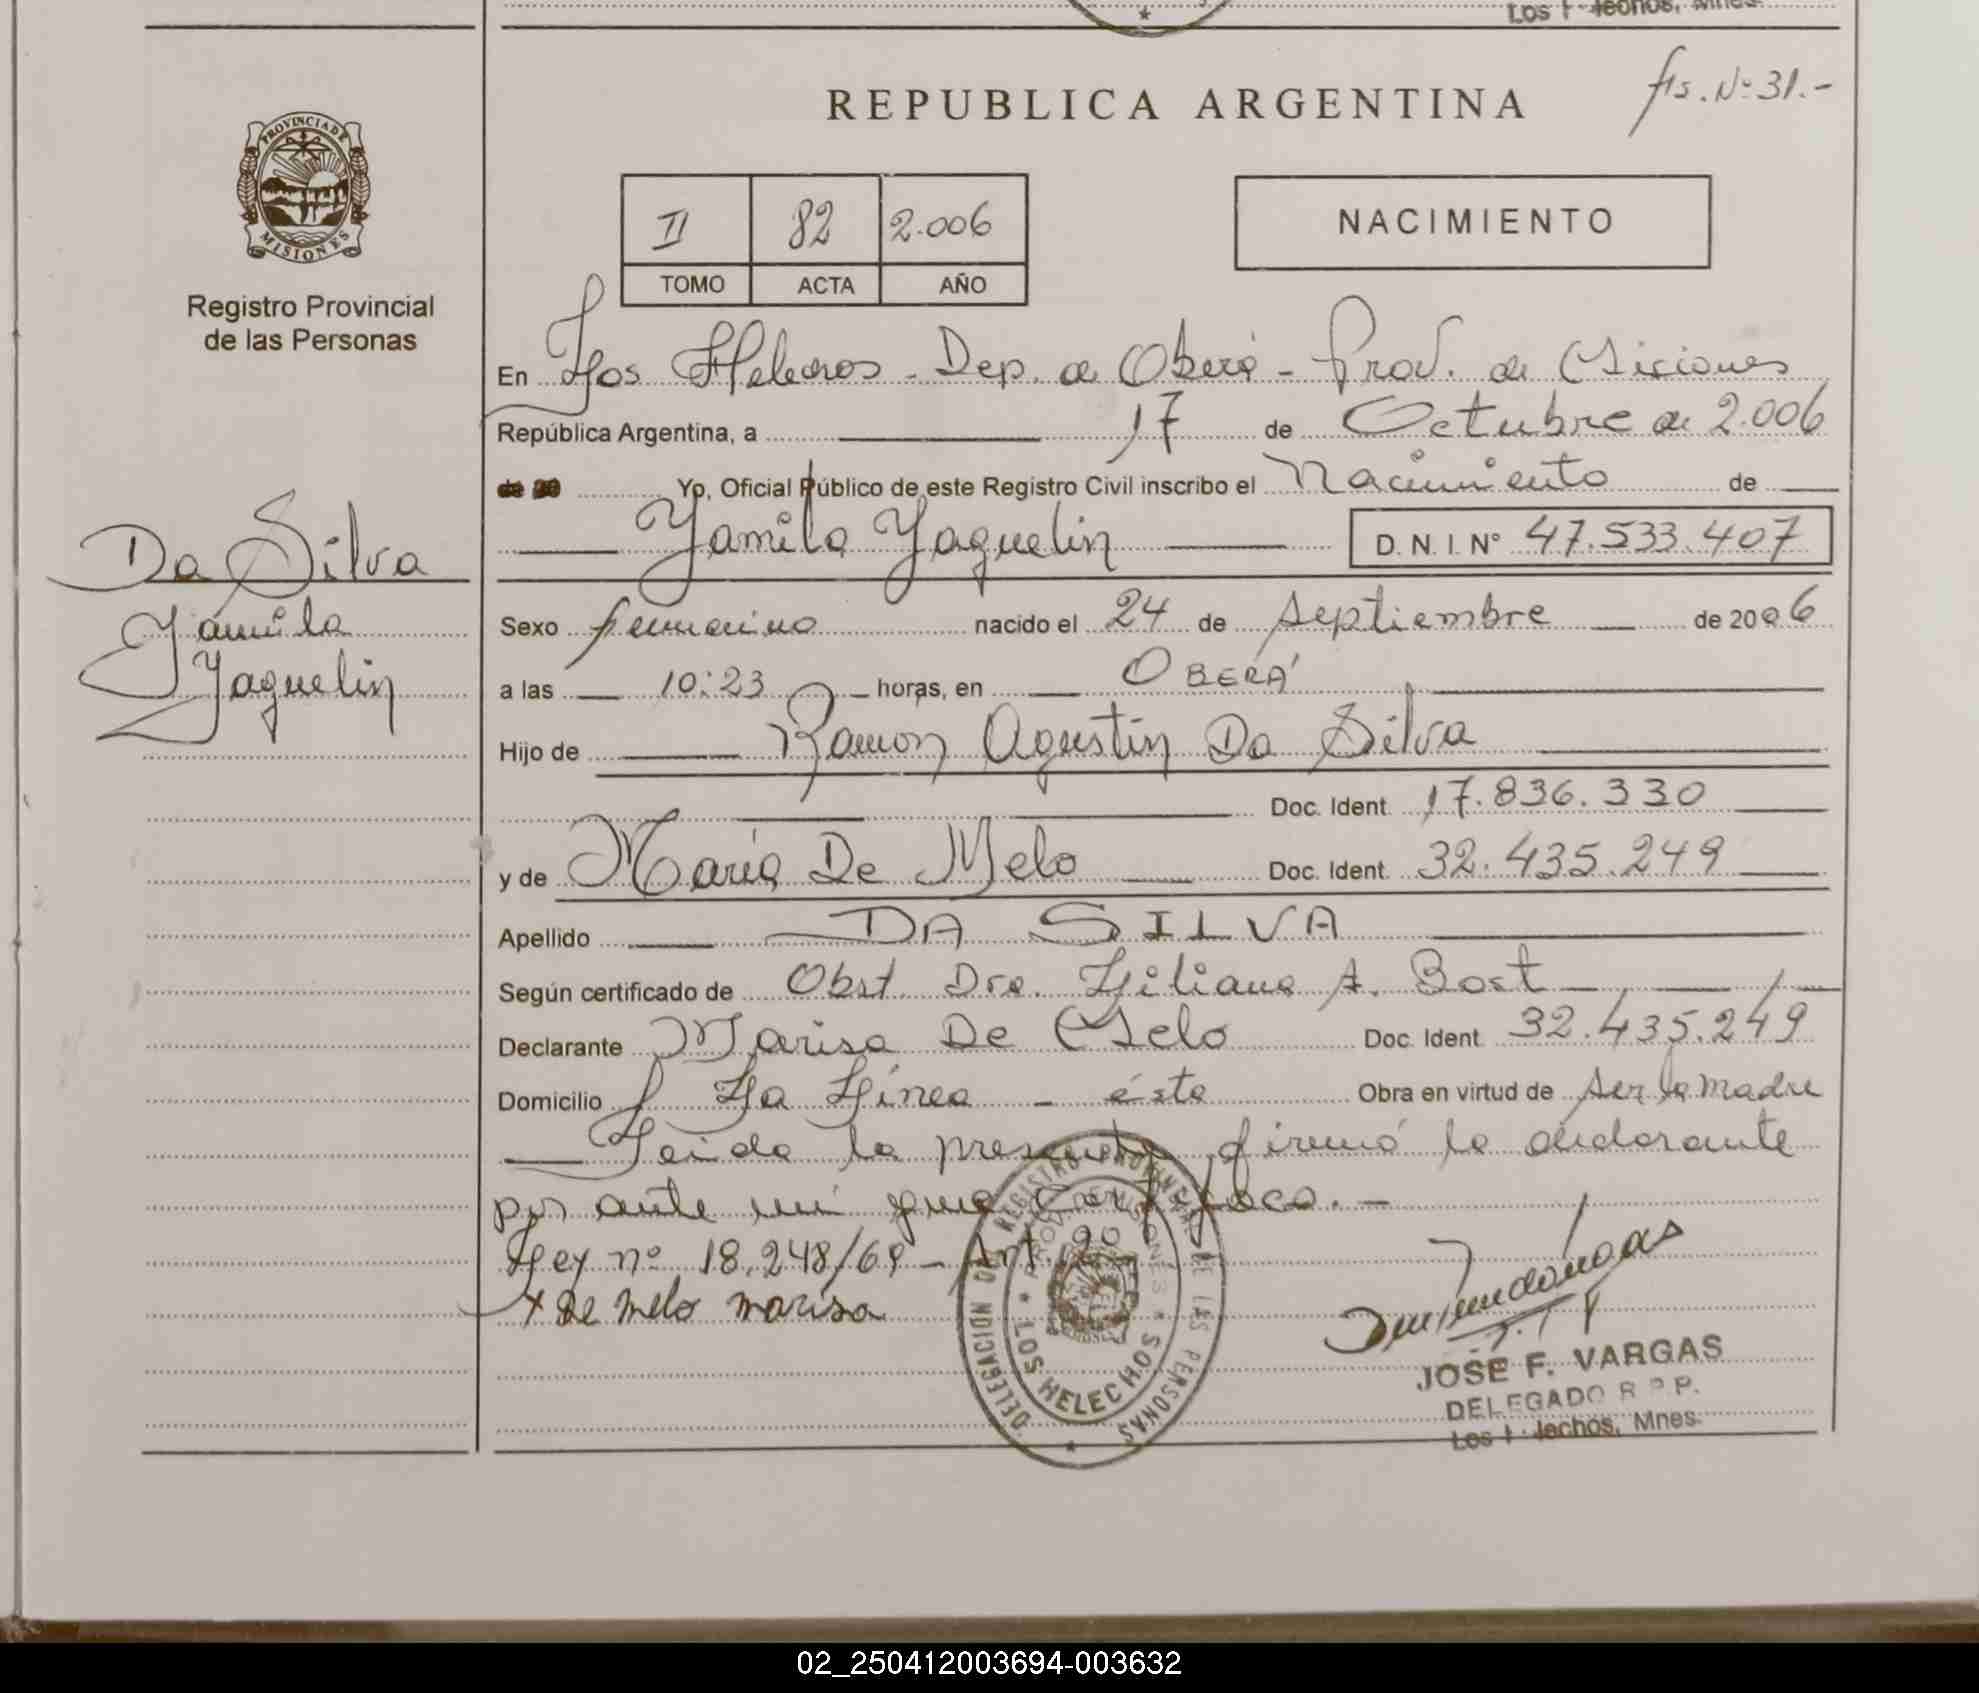 Los Helechos, Mnes.
REPUBLICA ARGENTINA
fs. Nº 31.-
PROVINCIA DE
MISIONES
Registro Provincial
de las Personas
II 82 2.006
TOMO ACTA AÑO
NACIMIENTO
En Los Helechos - Dep. de Oberá - Prov. de Misiones
República Argentina, a 17 de Octubre de 2.006
de 20 Yo, Oficial Público de este Registro Civil inscribo el Nacimiento de
Yamila Yaquelin D.N.I. Nº 47.533.407
Da Silva
Yamila
Yaquelin
Sexo femenino nacido el 24 de Septiembre de 2006
a las 10:23 horas, en OBERÁ
Hijo de Ramon Agustin Da Silva
Doc. Ident. 17.836.330
y de Maria De Melo Doc. Ident. 32.435.249
Apellido DA SILVA
Según certificado de Obst. Dra. Liliana A. Bost
Declarante Marisa De Melo Doc. Ident. 32.435.249
Domicilio La Línea - ésta Obra en virtud de ser la madre
Leida la presente, firmó la declarante
por ante mi que Certifico. -
Ley nº 18.248/69 - Art. 20
x de melo marisa
DELEGACION DEL REGISTRO PROVINCIAL DE LAS PERSONAS
PROV. DE MISIONES
LOS HELECHOS
JOSE F. VARGAS
DELEGADO R.P.P.
Los Helechos, Mnes.
02_250412003694-003632